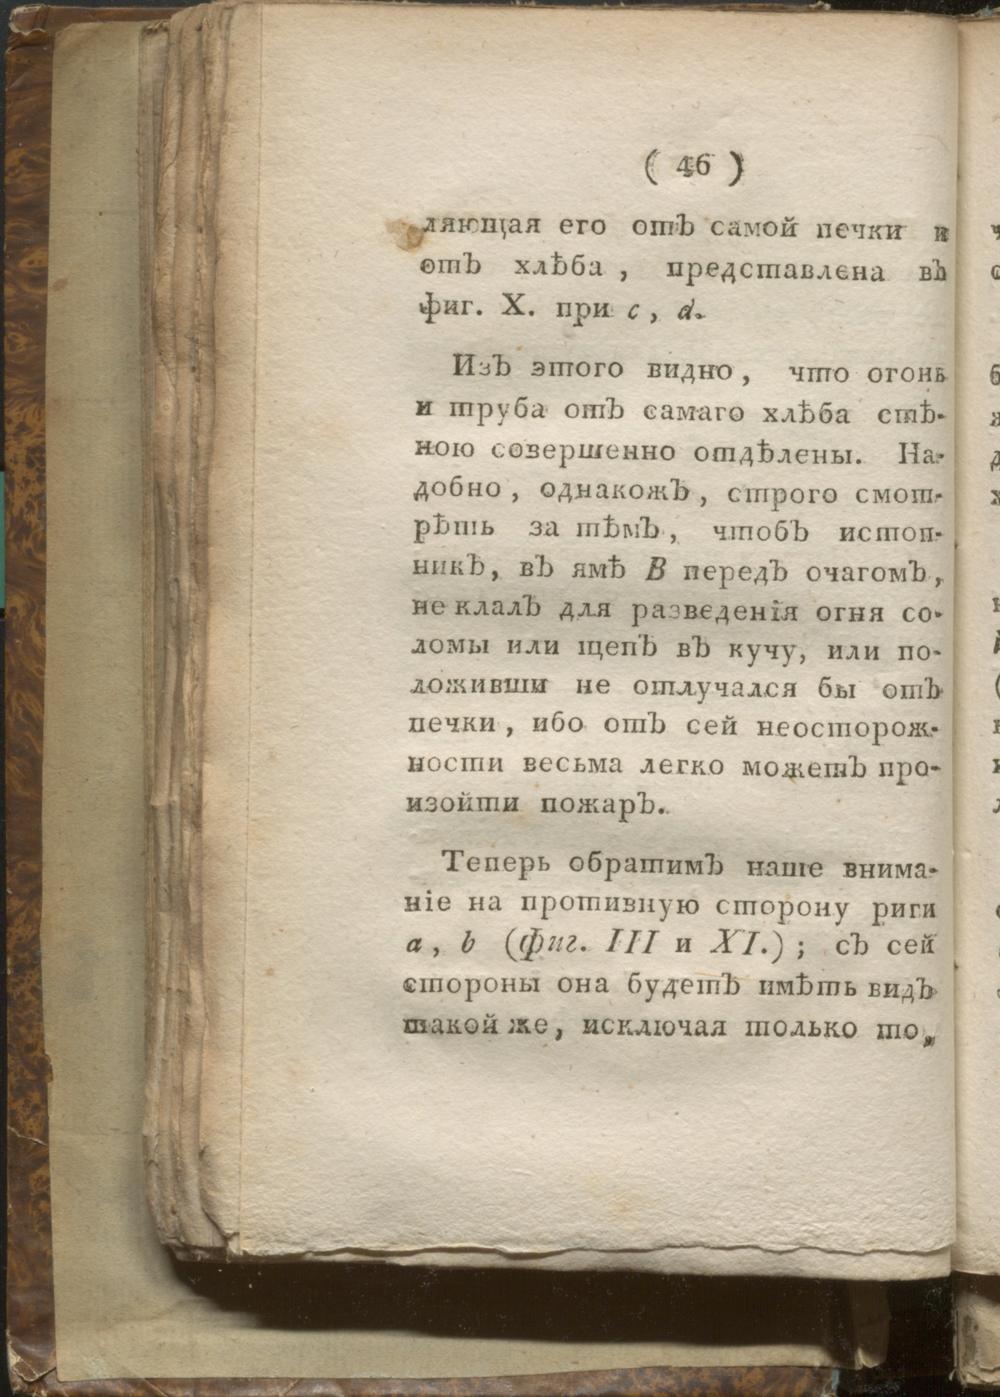 ( 46 )
ляющая его отъ самой печки и
отъ хлѣба , представлена въ
фиг. X. при c , d.
Изъ этого видно , что огонь
и труба отъ самаго хлѣба стѣ-
ною совершенно отдѣлены. На-
добно , однакожъ , строго смот-
рѣть за тѣмъ , чтобъ истоп-
никъ, въ ямѣ B передъ очагомъ,
не клалъ для разведенія огня со-
ломы или щепъ въ кучу, или по-
ложивши не отлучался бы отъ
печки , ибо отъ сей неосторож-
ности весьма легко можетъ про-
изойти пожаръ.
Теперь обратимъ наше внима-
ніе на противную сторону риги
a , b (фиг. III и XI.) ; съ сей
стороны она будетъ имѣть видъ
такой же, исключая только то,